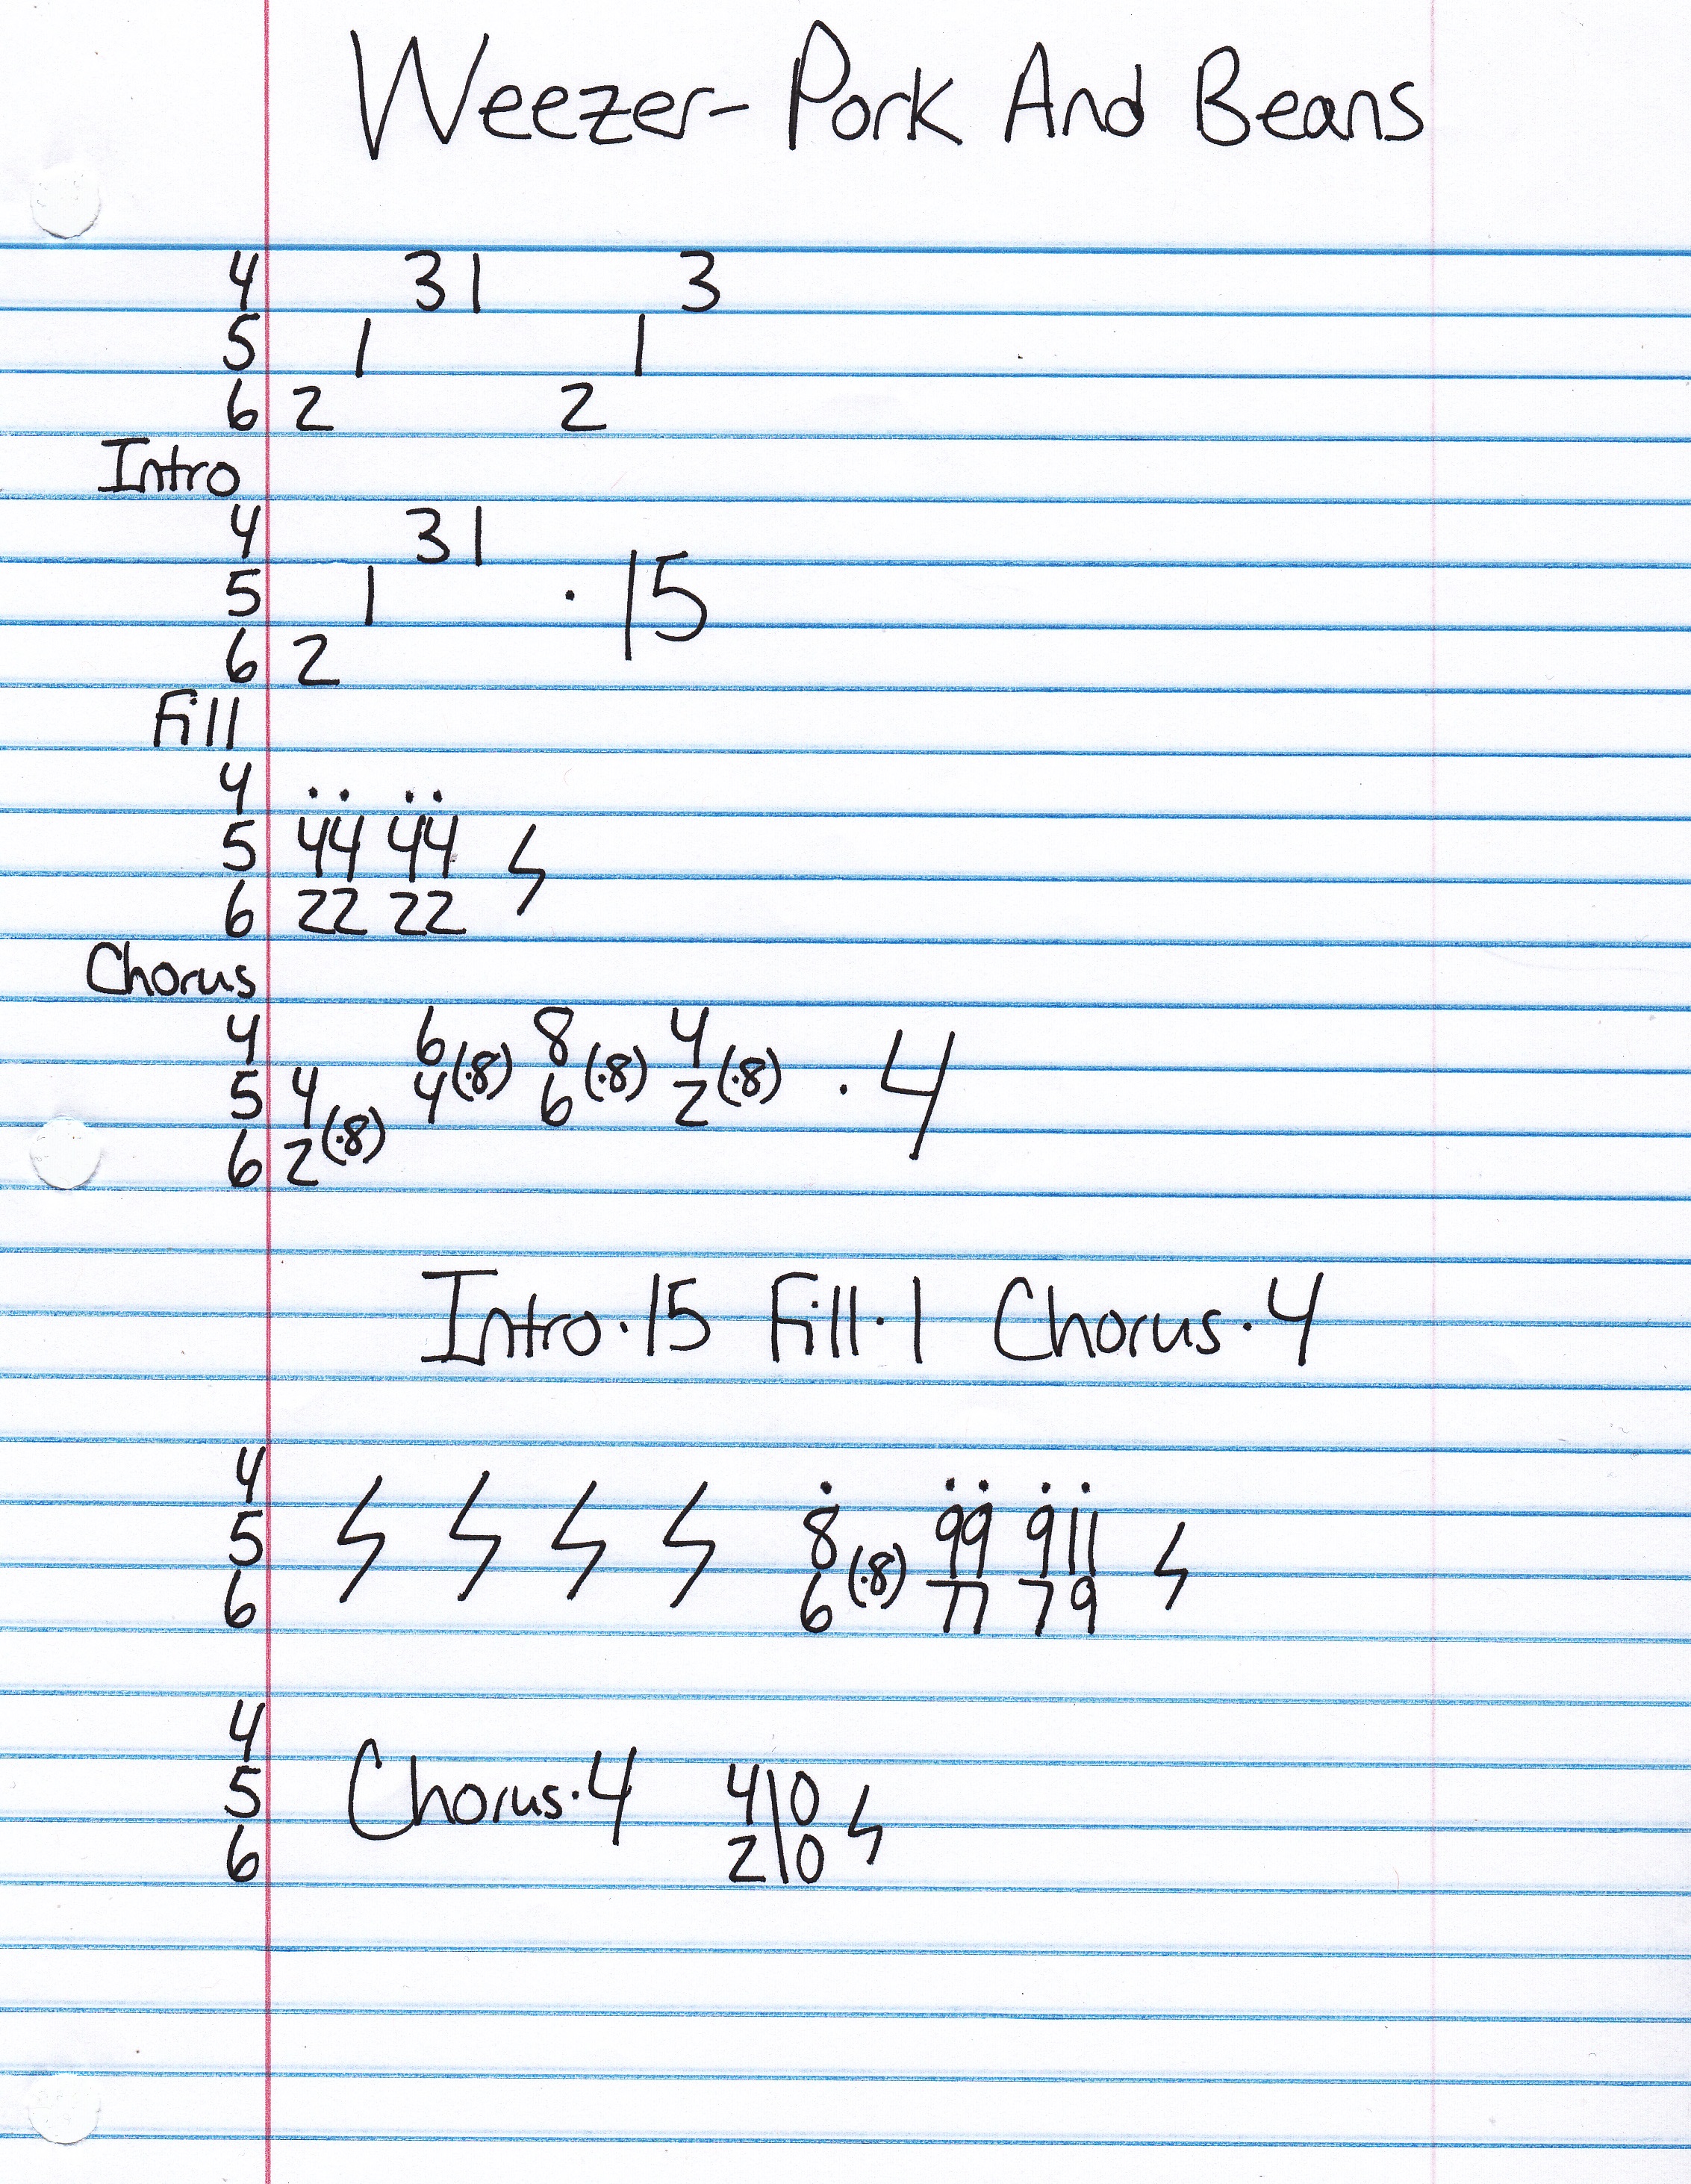 Weezer- Pork And Beans
4 31 3
5 1 1
6 2 2
Intro
4 31
5 1 · 15
6 2
Fill
4 ·· ··
5 44 44
6 22 22
Chorus
4 6 (·8) 8 (·8) 4 (·8)
5 4 4 6 2 · 4
6 2 (·8)
Intro·15 Fill·1 Chorus·4
4 · ·· ··
5 8 99 911
6 6 (·8) 77 79
4
5 Chorus·4 4\0
6 2\0